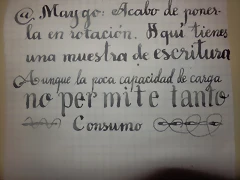 @ Maygo: Acabo de poner-
la en rotación. Aqui tienes
una muestra de escritura
Aunque la poca capacidad de carga
no permite tanto
Consumo